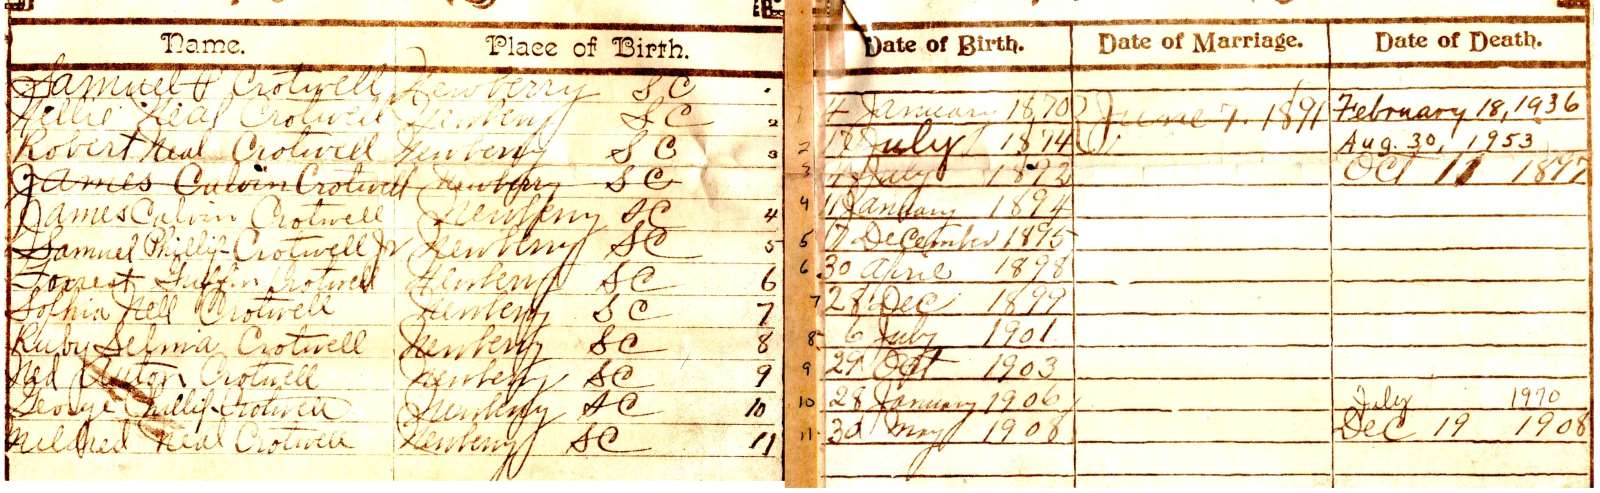 Name. Place of Birth. Date of Birth. Date of Marriage. Date of Death.
Samuel P Crotwell Newberry SC 1 4 January 1870 June 7. 1891 February 18, 1936
Nellie Neal Crotwell Newberry SC 2 2 July 1874 Aug. 30, 1953
Robert Neal Crotwell Newberry SC 3 3 4 July 1892 Oct 11 1897
James Calvin Crotwell Newberry SC
James Calvin Crotwell Newberry SC 4 4 11 January 1894
Samuel Phillip Crotwell Jr Newberry SC 5 5 17 December 1895
Forrest Griffin Crotwell Newberry SC 6 6 30 April 1898
Sophia Nell Crotwell Newberry SC 7 7 28 Dec 1899
Ruby Selma Crotwell Newberry SC 8 8 6 July 1901
Ned Crotwell Newberry SC 9 9 29 Oct 1903
George Phillip Crotwell Newberry SC 10 10 28 January 1906 July 1970
Mildred Neal Crotwell Newberry SC 11 11 30 May 1908 Dec 19 1908